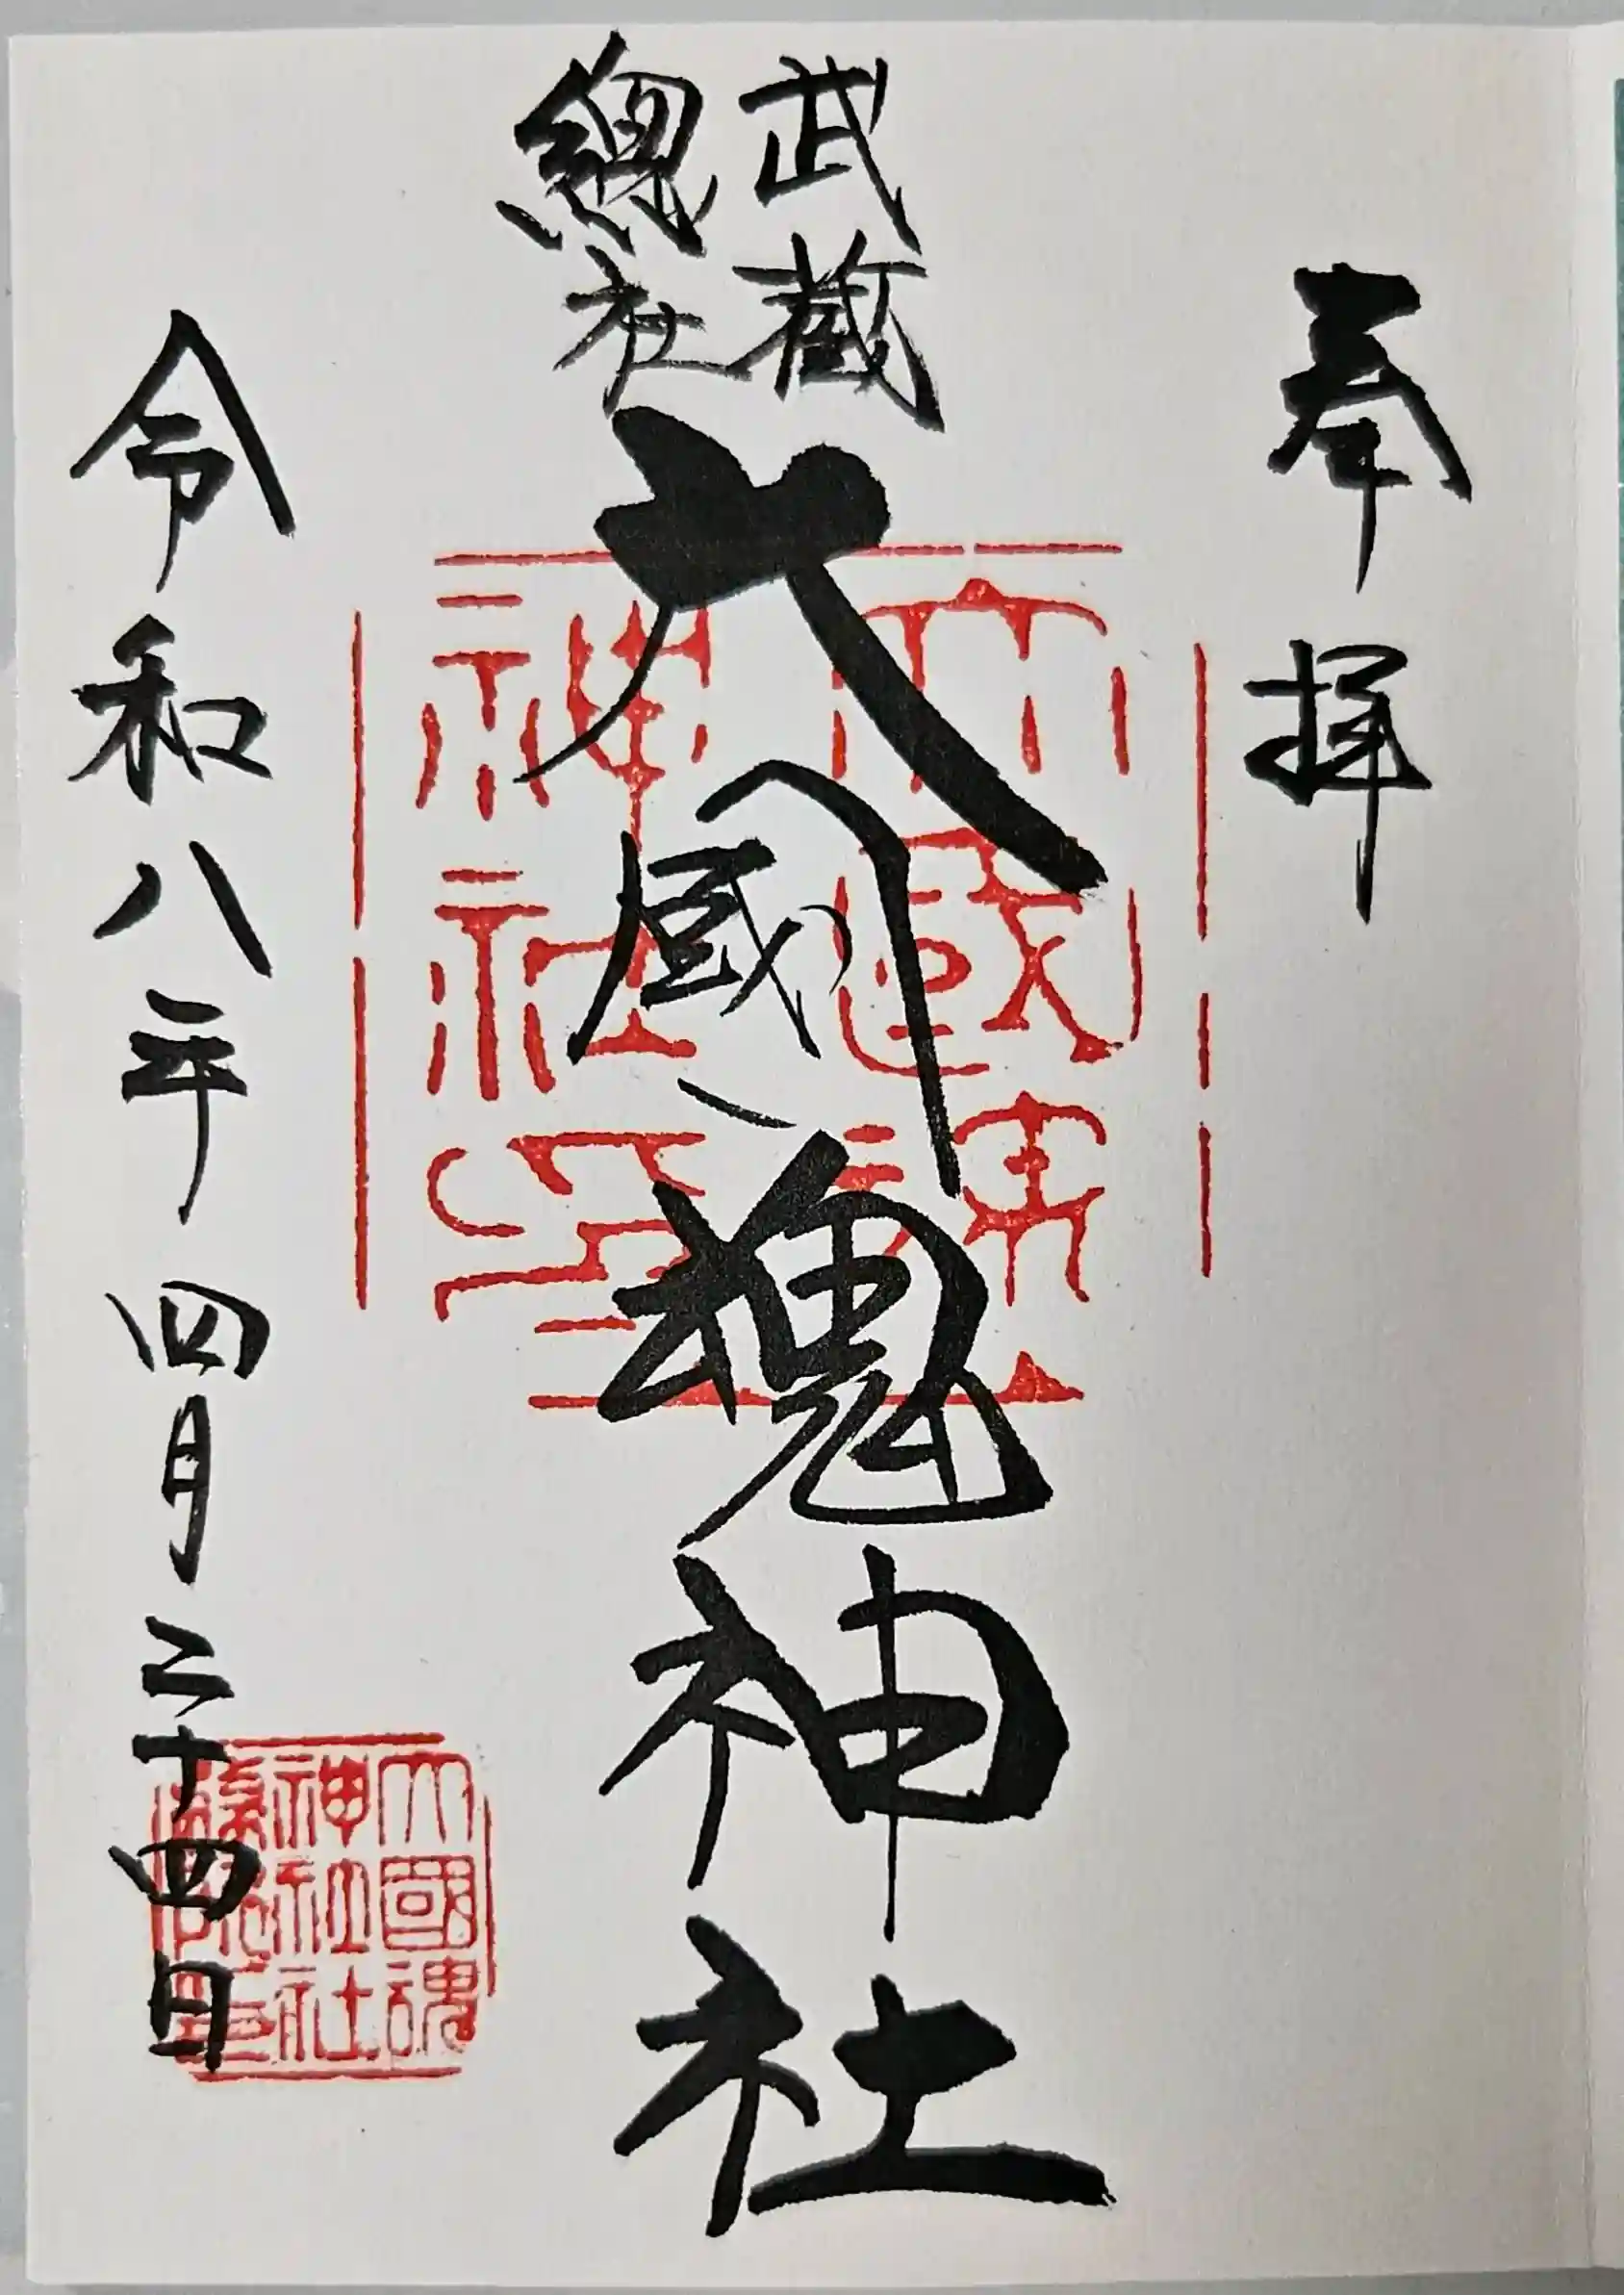 奉拝
武蔵
總社
大國魂神社
令和八年四月二十四日
大國魂
神社
印
大國魂
神社社